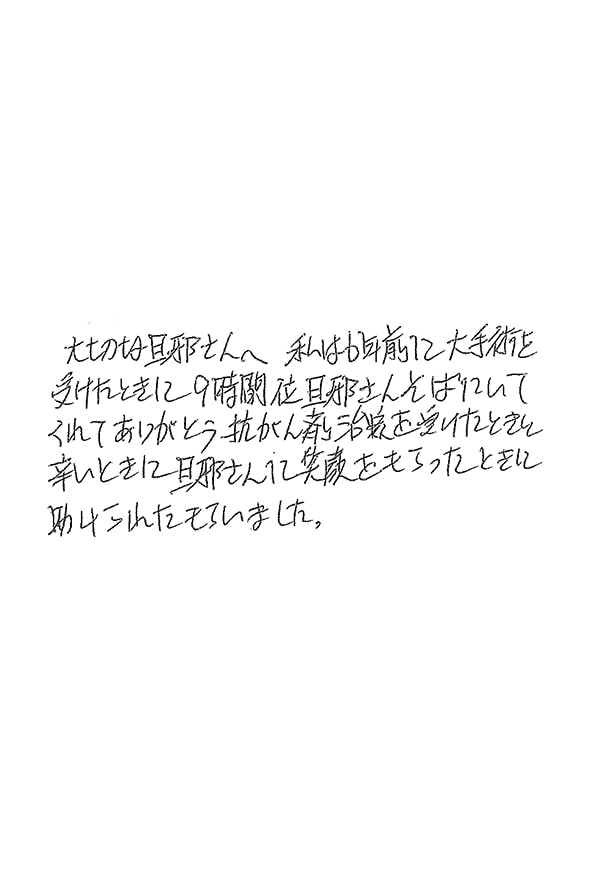 大切な旦那さんへ 私は6年前に大手術を
受けたときに9時間位旦那さんそばにいて
くれてありがとう抗がん剤治療を受けたときに
辛いときに旦那さんに笑顔をもらったときに
助けられたもらいました。